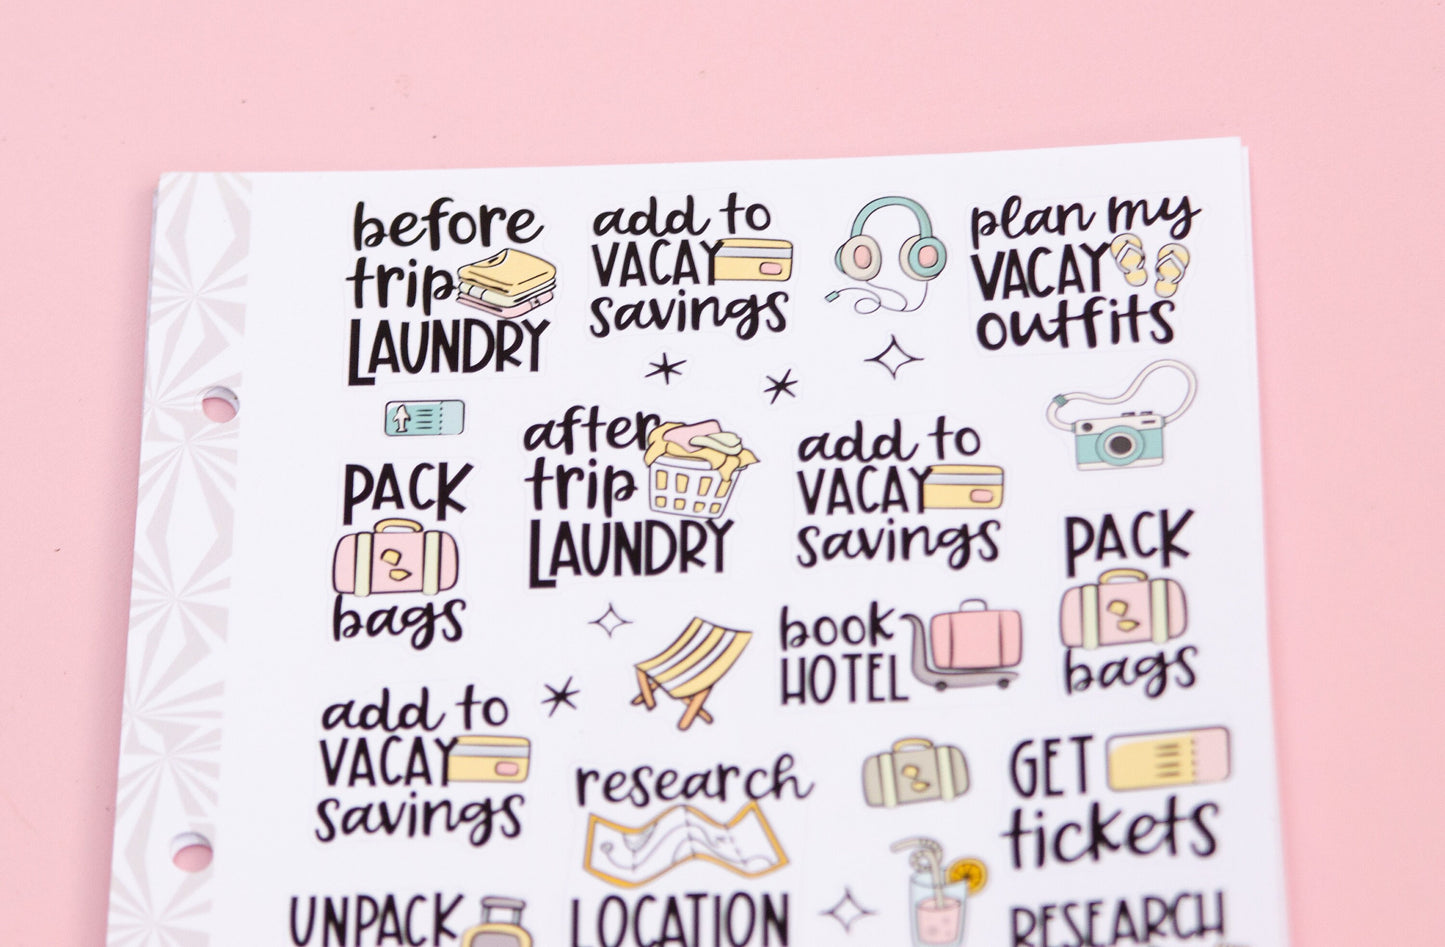 before
trip
LAUNDRY
add to
VACAY
savings
plan my
VACAY
outfits
PACK
bags
after
trip
LAUNDRY
add to
VACAY
savings
PACK
bags
book
HOTEL
add to
VACAY
savings
research
LOCATION
GET
tickets
UNPACK
RESEARCH